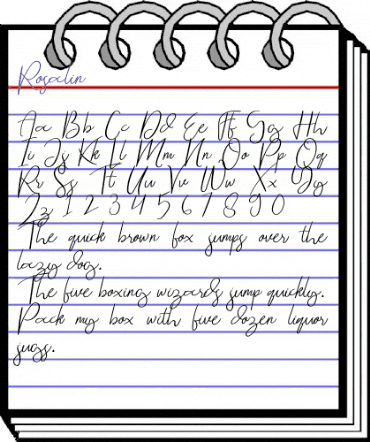 Rosalin
Aa Bb Cc Dd Ee Ff Gg Hh
Ii Jj Kk Ll Mm Nn Oo Pp Qq
Rr Ss Tt Uu Vv Ww Xx Yy
Zz 1 2 3 4 5 6 7 8 9 0
The quick brown fox jumps over the
lazy dog.
The five boxing wizards jump quickly.
Pack my box with five dozen liquor
jugs.